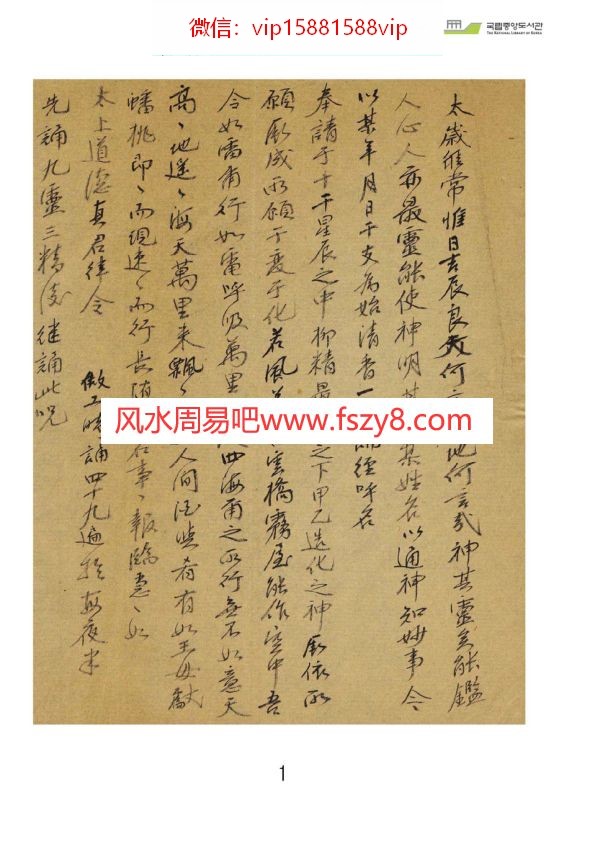 微信：vip15881588vip
국립중앙도서관
THE NATIONAL LIBRARY OF KOREA
太歲維常惟日吉辰良天何言地何言哉神其靈矣能鑑
人心人亦最靈能使神明某姓名以通神知妙事今
以某年月日干支爲始清香一經呼名
奉請于十干星辰之中抑精之下甲乙造化之神依所
願成所願千變千化若風雲橋霧屋能作空中吾
令如雷甫行如電呼吸萬里四海甫之所行無不如意天
高〻地遙〻海天萬里來飄〻人間酒與肴有如王母獻
蟠桃即〻而現速〻而行長事〻報臨如
太上道德真君律令 做工時誦四十九遍每夜半
先誦九靈三精後誦此呪
风水周易吧www.fszy8.com
1